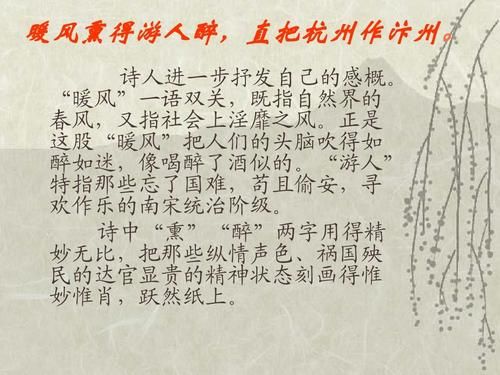 暖风熏得游人醉，直把杭州作汴州。
诗人进一步抒发自己的感概。
“暖风”一语双关，既指自然界的
春风，又指社会上淫靡之风。正是
这股“暖风”把人们的头脑吹得如
醉如迷，像喝醉了酒似的。“游人”
特指那些忘了国难，苟且偷安，寻
欢作乐的南宋统治阶级。
诗中“熏”“醉”两字用得精
妙无比，把那些纵情声色、祸国殃
民的达官显贵的精神状态刻画得惟
妙惟肖，跃然纸上。